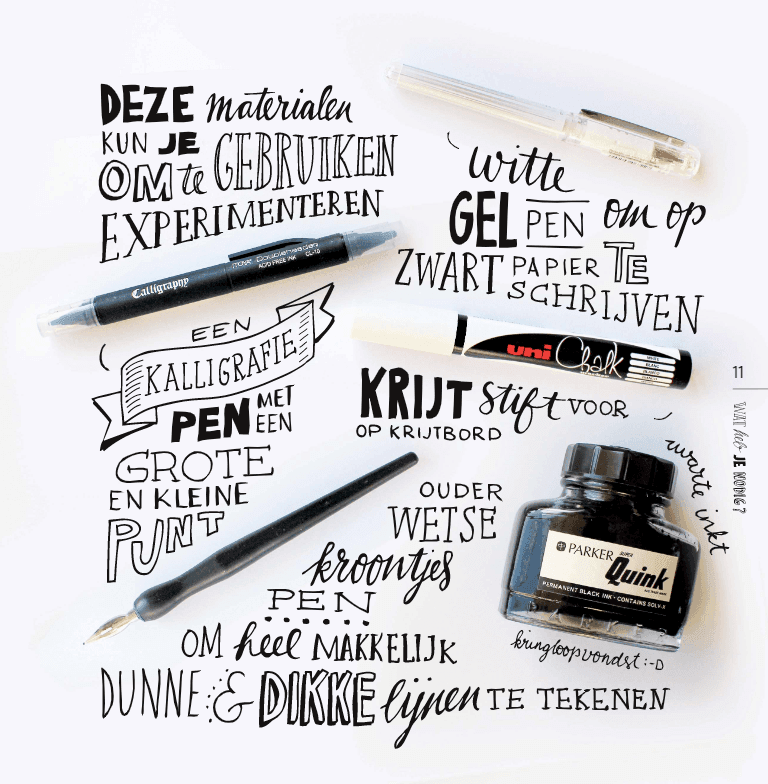 DEZE materialen
KUN JE
OM te GEBRUIKEN
EXPERIMENTEREN
witte
GEL PEN om op
ZWART PAPIER TE
SCHRIJVEN
Calligraphy
Doubleheader
ACID FREE INK CL-10
EEN
KALLIGRAFIE
PEN MET
EEN
GROTE
EN KLEINE
PUNT
uni Chalk
KRIJT stift VOOR
OP KRIJTBORD
11
WAT heb JE NODIG?
zwarte inkt
PARKER SUPER
Quink
PERMANENT BLACK INK • CONTAINS SOLV-X
PARKER
kringloopvondst :-D
OUDER
WETSE
kroontjes
PEN
OM heel MAKKELIJK
DUNNE & DIKKE lijnen TE TEKENEN